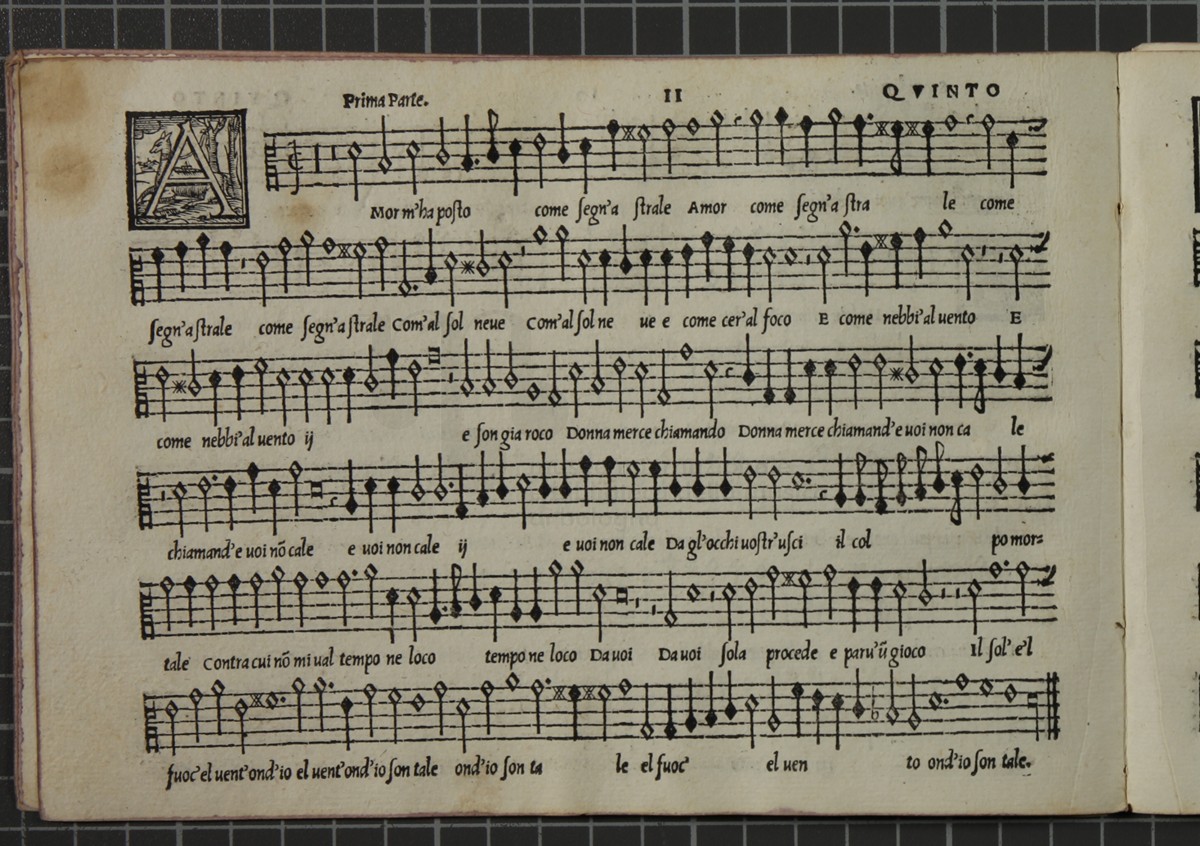 Prima Parte. II QVINTO
AMor m'ha posto come segn'a strale Amor come segn'a stra le come
segn'a strale come segn'a strale Com'al sol neue Com'al sol ne ue e come cer'al foco E come nebbi'al uento E
come nebbi'al uento ij e son gia roco Donna merce chiamando Donna merce chiamand'e uoi non ca le
chiamand'e uoi nõ cale e uoi non cale ij e uoi non cale Da gl'occhi uostr'usci il col po mor=
tale Contra cui nõ mi ual tempo ne loco tempo ne loco Da uoi Da uoi sola procede e paru'ũ gioco Il sol' e'l
fuoc'el uent'ond'io el uent'ond'io son tale ond'io son ta le el fuoc' el uen to ond'io son tale.